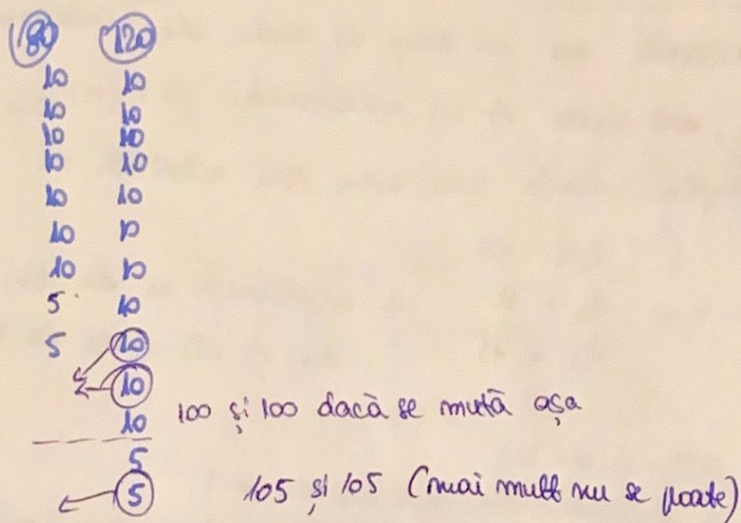 80 120
10 10
10 10
10 10
10 10
10 10
10 10
10 10
5 10
5 10
10
10 100 și 100 dacă se mută așa
5
5 105 și 105 (mai mult nu se poate)